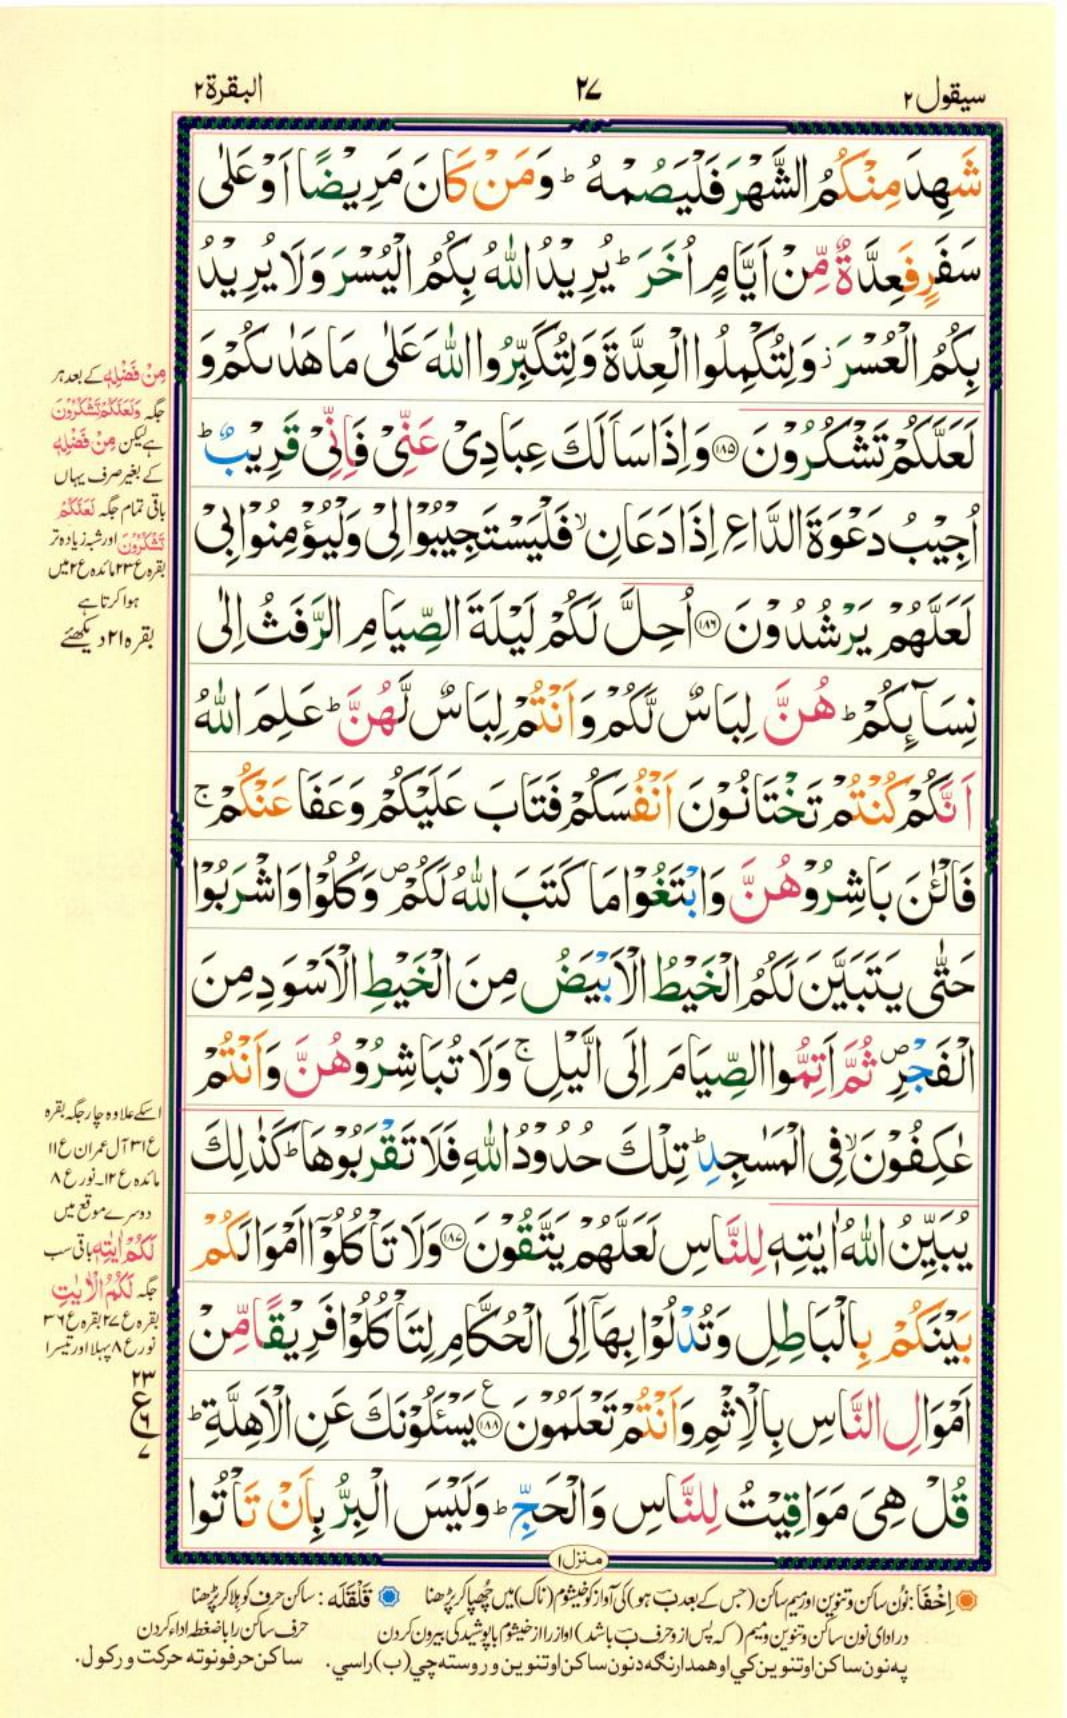 سيقول ٢
٢٧
البقرة ٢
شَهِدَ مِنْكُمُ الشَّهْرَ فَلْيَصُمْهُ ؕ وَمَنْ كَانَ مَرِيْضًا اَوْ عَلٰى
سَفَرٍ فَعِدَّةٌ مِّنْ اَيَّامٍ اُخَرَ ؕ يُرِيْدُ اللّٰهُ بِكُمُ الْيُسْرَ وَلَا يُرِيْدُ
بِكُمُ الْعُسْرَ ؗ وَلِتُكْمِلُوا الْعِدَّةَ وَلِتُكَبِّرُوا اللّٰهَ عَلٰى مَا هَدٰىكُمْ وَ
لَعَلَّكُمْ تَشْكُرُوْنَ ﴿۱۸۵﴾ وَاِذَا سَاَلَكَ عِبَادِىْ عَنِّىْ فَاِنِّىْ قَرِيْبٌ ؕ
اُجِيْبُ دَعْوَةَ الدَّاعِ اِذَا دَعَانِ ۙ فَلْيَسْتَجِيْبُوْا لِىْ وَلْيُؤْمِنُوْا بِىْ
لَعَلَّهُمْ يَرْشُدُوْنَ ﴿۱۸۶﴾ اُحِلَّ لَكُمْ لَيْلَةَ الصِّيَامِ الرَّفَثُ اِلٰى
نِسَآىِٕكُمْ ؕ هُنَّ لِبَاسٌ لَّكُمْ وَاَنْتُمْ لِبَاسٌ لَّهُنَّ ؕ عَلِمَ اللّٰهُ
اَنَّكُمْ كُنْتُمْ تَخْتَانُوْنَ اَنْفُسَكُمْ فَتَابَ عَلَيْكُمْ وَعَفَا عَنْكُمْ ۚ
فَالْئٰنَ بَاشِرُوْهُنَّ وَابْتَغُوْا مَا كَتَبَ اللّٰهُ لَكُمْ ۪ وَكُلُوْا وَاشْرَبُوْا
حَتّٰى يَتَبَيَّنَ لَكُمُ الْخَيْطُ الْاَبْيَضُ مِنَ الْخَيْطِ الْاَسْوَدِ مِنَ
الْفَجْرِ ۪ ثُمَّ اَتِمُّوا الصِّيَامَ اِلَى الَّيْلِ ۚ وَلَا تُبَاشِرُوْهُنَّ وَاَنْتُمْ
عٰكِفُوْنَ ۙ فِى الْمَسٰجِدِ ؕ تِلْكَ حُدُوْدُ اللّٰهِ فَلَا تَقْرَبُوْهَا ؕ كَذٰلِكَ
يُبَيِّنُ اللّٰهُ اٰيٰتِهٖ لِلنَّاسِ لَعَلَّهُمْ يَتَّقُوْنَ ﴿۱۸۷﴾ وَلَا تَاْكُلُوْٓا اَمْوَالَكُمْ
بَيْنَكُمْ بِالْبَاطِلِ وَتُدْلُوْا بِهَآ اِلَى الْحُكَّامِ لِتَاْكُلُوْا فَرِيْقًا مِّنْ
اَمْوَالِ النَّاسِ بِالْاِثْمِ وَاَنْتُمْ تَعْلَمُوْنَ ﴿۱۸۸﴾ ع يَسْـَٔلُوْنَكَ عَنِ الْاَهِلَّةِ ؕ
قُلْ هِىَ مَوَاقِيْتُ لِلنَّاسِ وَالْحَجِّ ؕ وَلَيْسَ الْبِرُّ بِاَنْ تَاْتُوا
منزل ۱
مِنْ فَضْلِهٖ کے بعد ہر
جگہ وَلَعَلَّكُمْ تَشْكُرُوْنَ
ہے لیکن مِنْ فَضْلِهٖ
کے بغیر صرف یہاں
باقی تمام جگہ لَعَلَّكُمْ
تَشْكُرُوْنَ اور شبہ زیادہ تر
بقرہ ع ۲۳ مائدہ ع ۲ میں
ہوا کرتا ہے
بقرہ ۲۱ د یکھئے
اسکے علاوہ چار جگہ بقرہ
ع ۳۱ آل عمران ع ۱۱
مائدہ ع ۱۲۔ نور ع ۸
دوسرے موقع میں
لَكُمْ اٰيٰتِهٖ باقی سب
جگہ لَكُمُ الْاٰيٰتِ
بقرہ ع ۲۷ بقرہ ع ۳۶
نور ع ۸ پہلا اور تیسرا
۲۳
ع
۶
۷
اِخْفَا : نون ساکن و تنوین اور میم ساکن (جس کے بعد ب ہو) کی آواز کو خیشوم (ناک) میں چھپا کر پڑھنا
قَلْقَلَه : ساکن حرف کو ہلا کر پڑھنا
در ادای نون ساکن و تنوین و میم (که پس از و حرف ب باشد) اواز را از خیشوم با پوشیدگی بیرون کردن
حرف ساکن را با ضغطه اداء کردن
په نون ساکن او تنوین کي او همدارنګه د نون ساکن او تنوین و روسته چي (ب) راسي.
ساکن حرفونو ته حرکت ورکول.